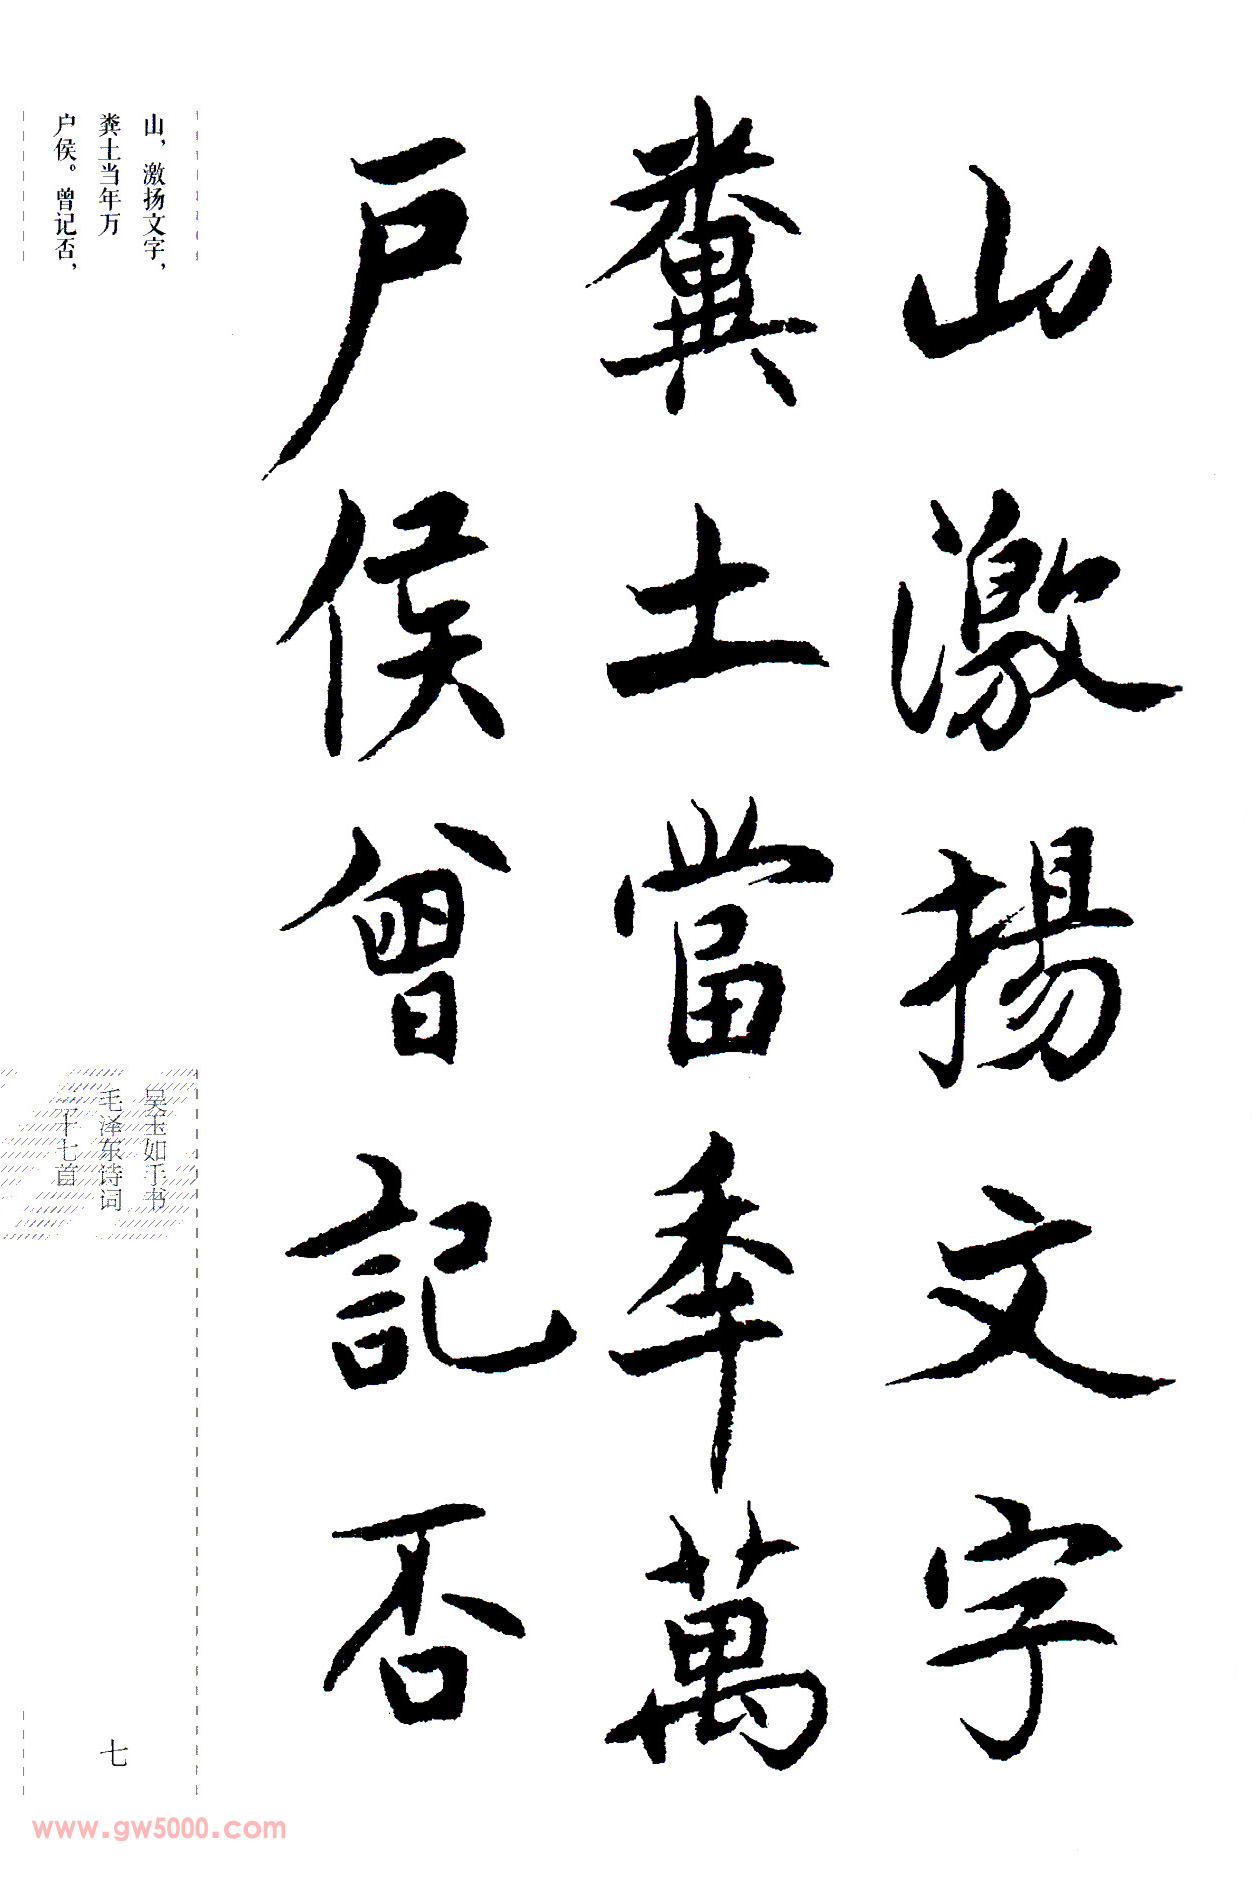 山激揚文字
糞土當年萬
戶侯曾記否
山，激扬文字，
粪土当年万
户侯。曾记否，
吴玉如手书
毛泽东诗词
二十七首
七
www.gw5000.com